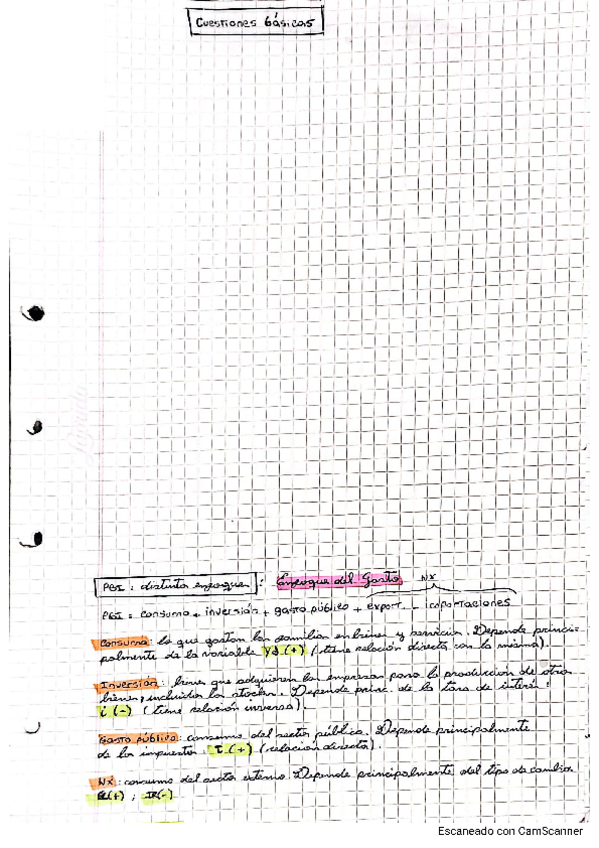 Cuestiones básicas
PBI : distinto enfoque : Enfoque del Gasto NX
PBI = consumo + inversión + gasto público + export. - importaciones
Consumo: lo que gastan las familias en bienes y servicios. Depende princi-
palmente de la variable Yd (+) (tiene relación directa con la misma).
Inversión: bienes que adquieren las empresas para la producción de otros
bienes, incluidos los stocks. Depende princ. de la tasa de interés:
i (-) (tiene relación inversa).
Gasto público: consumo del sector público. Depende principalmente
de los impuestos. T (+) (relación directa).
NX: consumo del sector externo. Depende principalmente del tipo de cambio.
(+) ; (-)
Escaneado con CamScanner